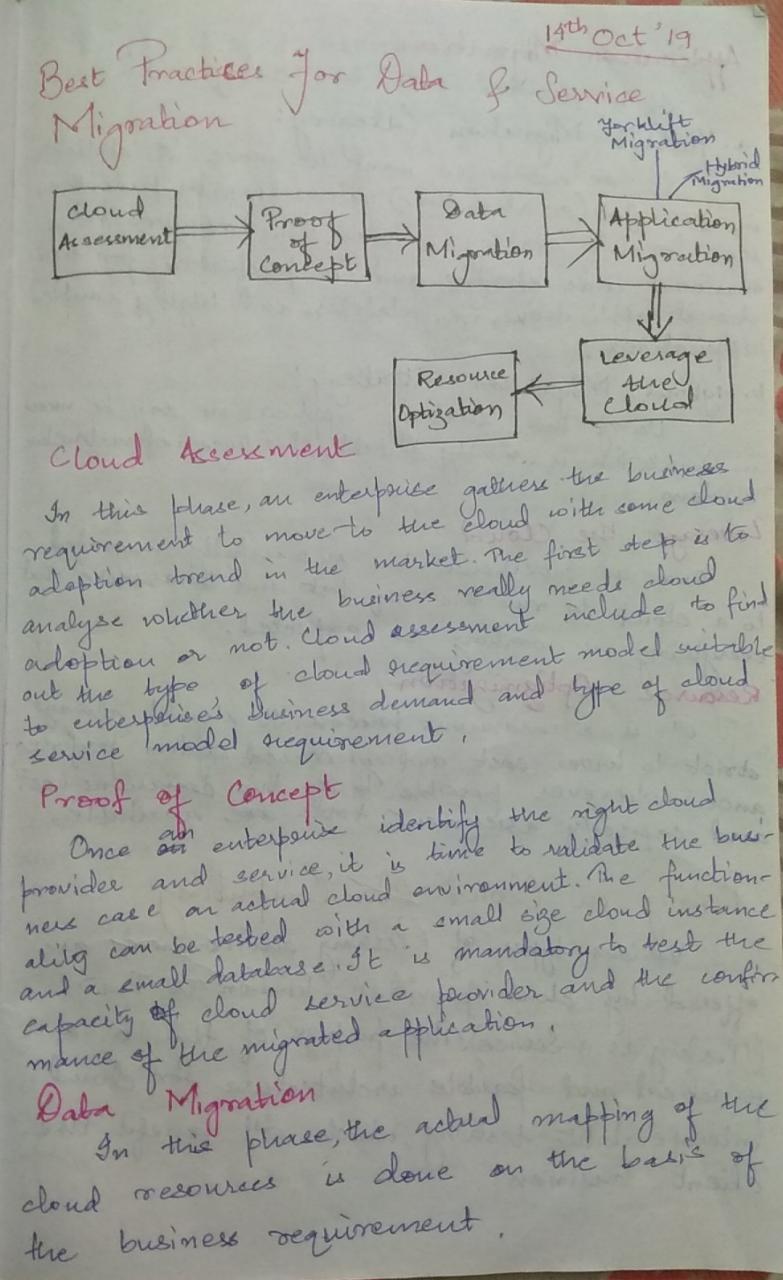 14th Oct '19
Best Practices For Data & Service
Migration
Forklift
Migration
Hybrid
Migration
Cloud
Assessment
Proof
of
Concept
Data
Migration
Application
Migration
Leverage
the
Cloud
Resource
Optization
Cloud Assessment
In this phase, an enterprise gathers the business
requirement to move to the cloud with some cloud
adoption trend in the market. The first step is to
analyse whether the business really needs cloud
adoption or not. Cloud assessment include to find
out the type of cloud requirement model suitable
to enterprise's business demand and type of cloud
service model requirement.
Proof of Concept
Once an enterprise identify the right cloud
provider and service, it is time to validate the busi-
ness case on actual cloud environment. The function-
ality can be tested with a small size cloud instance
and a small database. It is mandatory to test the
capacity of cloud service provider and the confir
mance of the migrated application.
Data Migration
In this phase, the actual mapping of the
cloud resources is done on the basis of
the business requirement.